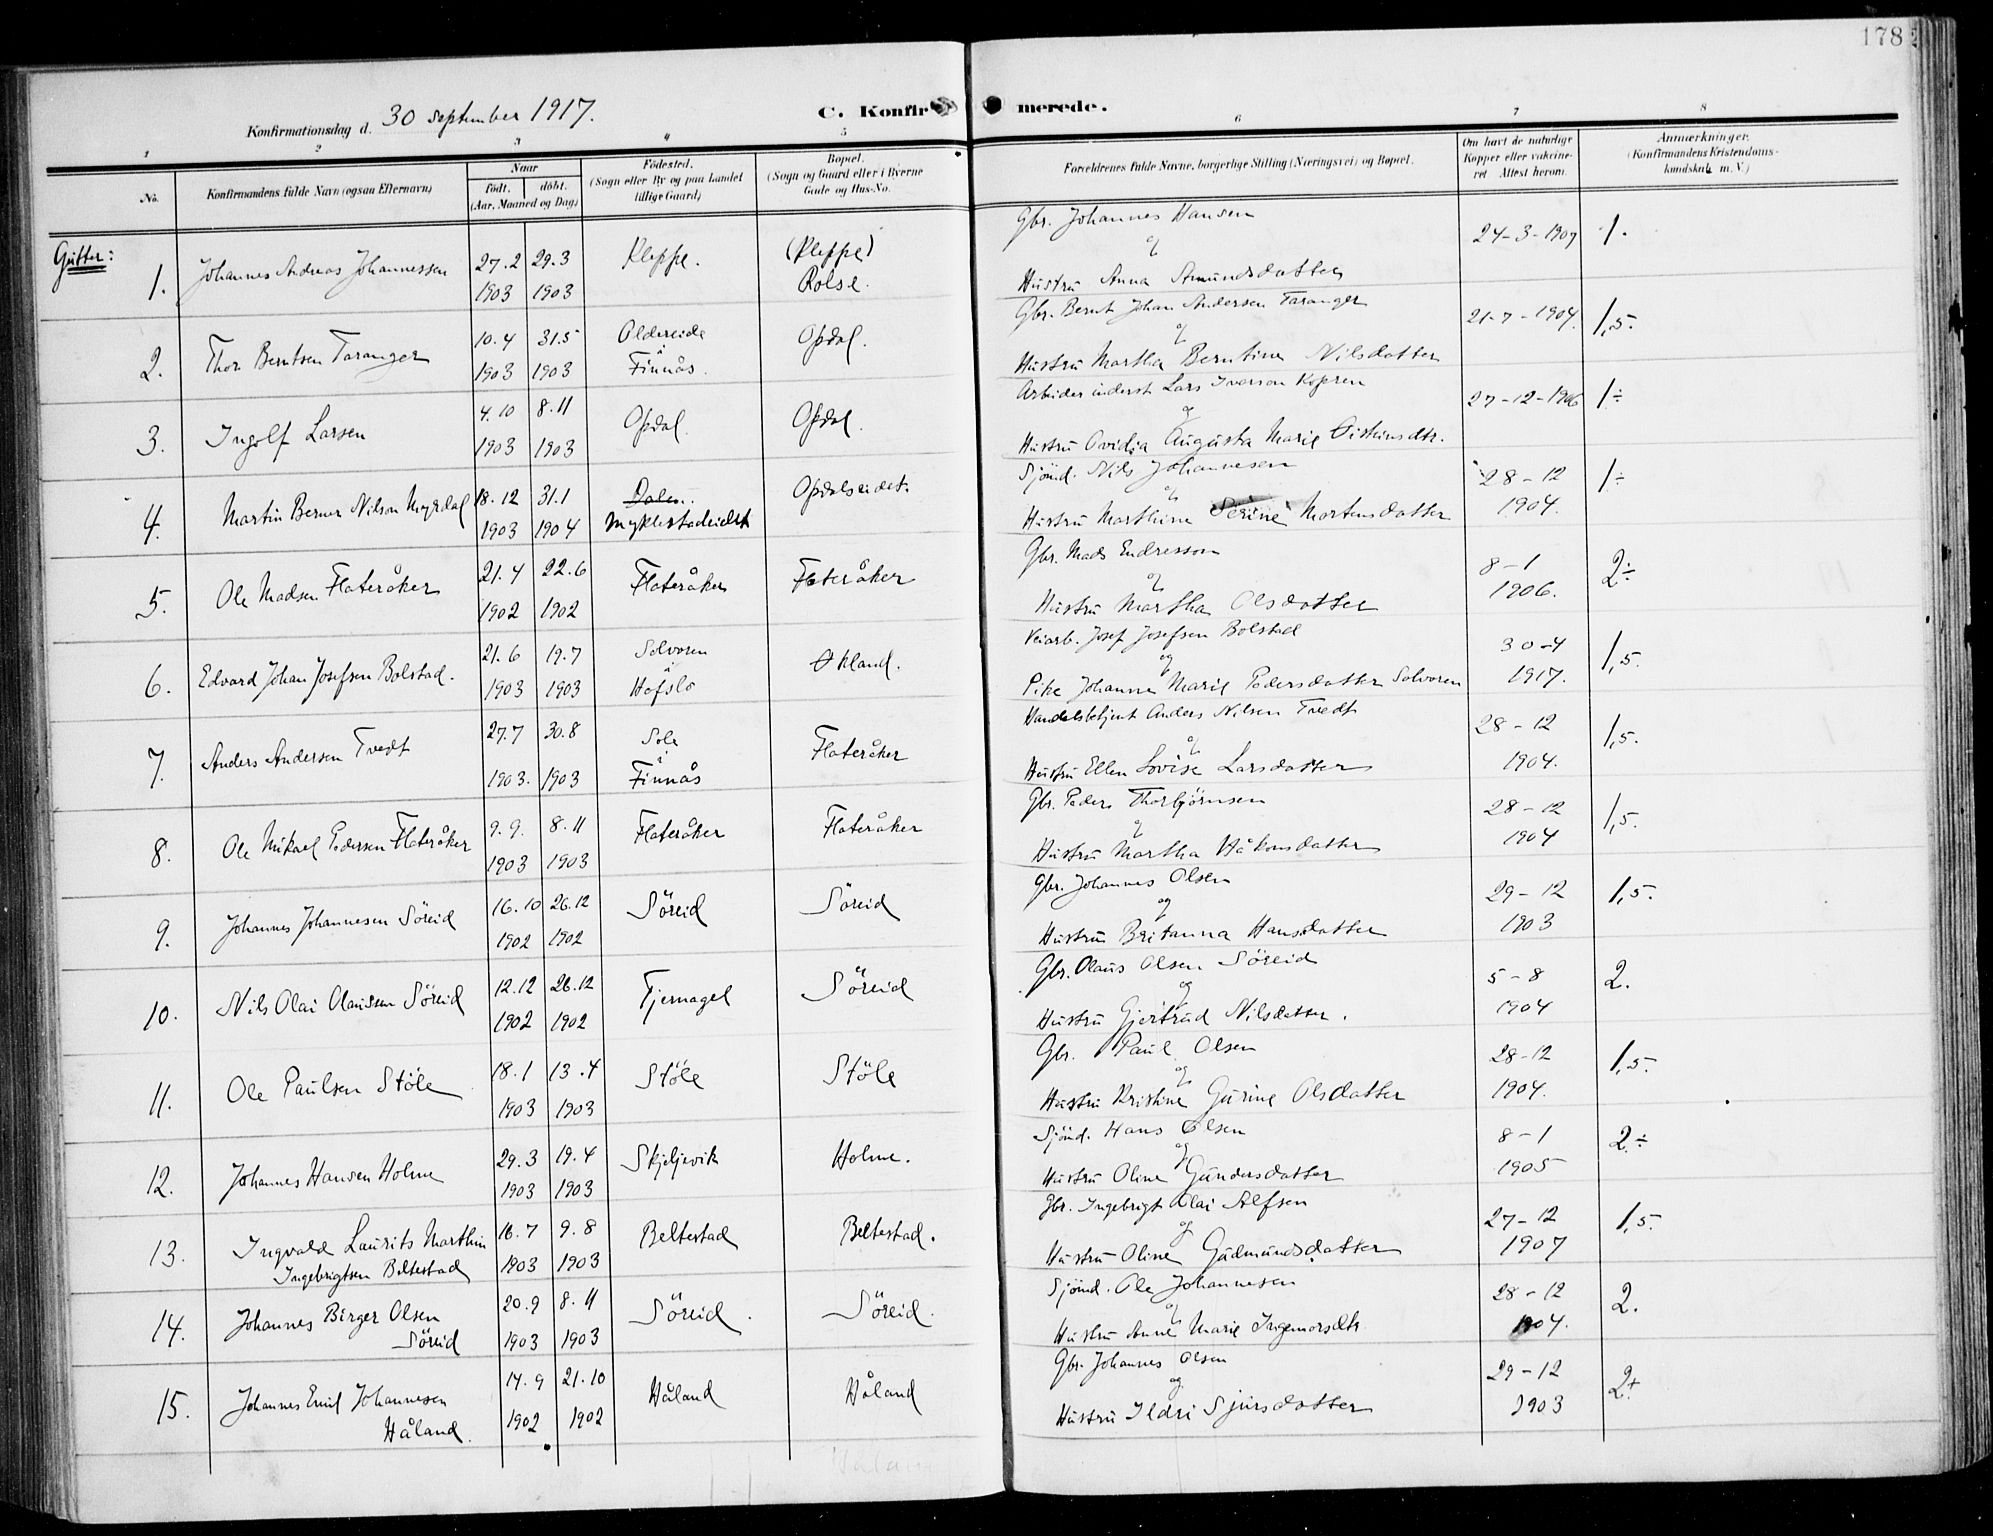 178
Konfirmationsdag d. 30 september 1917.
C. Konfirmerede.
1 2 3 4 5 6 7 8
No.
Konfirmandens fulde Navn (ogsaa Efternavn)
Naar
födt. döbt.
(Aar, Maaned og Dag)
Födested.
(Sogn eller By og paa Landet
tillige Gaard)
Bopæl.
(Sogn og Gaard eller i Byerne
Gade og Hus-No.
Forældrenes fulde Navne, borgerlige Stilling (Næringsvei) og Bopæl.
Om havt de naturlige
Kopper eller vakcine-
ret Attest herom.
Anmærkninger.
(Konfirmandens Kristendoms-
kundskab m. V.)
Gutter:
1. Johannes Andreas Johannessen 27.2 1903 29.3 1903 Kleppe. (Kleppe) Rolse.
Gbr. Johannes Hansen
og
Hustru Anna Amundsdatter
24-3-1907 1.
2. Thor Berntsen Taranger 10.4 1903 31.5 1903 Oldereide i Finnås. Opdal.
Gbr. Bernt Johan Andersen Taranger
og
Hustru Martha Berntine Nilsdatter
21-7-1904. 1,5.
3. Ingolf Larsen 4.10 1903 8.11 1903 Opdal. Opdal.
Arbeider inderst Lars Iverson Kopren
og
Hustru Ovidia Augusta Marie Oistinsdtr.
27-12-1906 1÷
4. Martin Berner Nilson Myrdal 18.12 1903 31.1 1904 Dalen. Myklestadeidet Opdalseidet.
Sjömd. Nils Johannesen
og
Hustru Marthine Serine Mortensdatter
28-12 1904. 1÷
5. Ole Madsen Flateråker 21.4 1902 22.6 1902 Flateråker Flateråker
Gbr. Mads Endresson
og
Hustru Martha Olsdatter
8-1 1906. 2÷
6. Edvard Johan Josefsen Bolstad. 21.6 1903 19.7 1903 Solvoren i Hafslo Økland.
Veiarb. Josef Josefsen Bolstad
og
Pike Johanne Marie Pedersdatter Solvoren
30-4 1917. 1,5.
7. Anders Andersen Tvedt 27.7 1903. 30.8 1903 Sole i Finnås Flateråker
Handelsbetjent Anders Nilsen Tvedt
og
Hustru Ellen Lovise Larsdatter
28-12 1904. 1,5.
8. Ole Mikael Pedersen Flateråker 9.9. 1903 8.11 1903 Flateråker Flateråker
Gbr. Peder Thorbjörnsen
og
Hustru Martha Håkonsdatter
28-12 1904 1,5.
9. Johannes Johannesen Söreid 16.10 1902 26.12 1902 Söreid Söreid
Gbr. Johannes Olsen
og
Hustru Britanna Hansdatter
29-12 1903 1,5.
10. Nils Olai Olaussen Söreid 12.12 1902 26.12 1902 Tjernagel Söreid
Gbr. Olaus Olsen Söreid
og
Hustru Gjertrud Nilsdatter.
5-8 1904 2.
11. Ole Paulsen Stöle 18.1 1903 13.4 1903 Stöle Stöle
Gbr. Paul Olsen
og
Hustru Kristine Gurine Olsdatter
28-12 1904. 1,5.
12. Johannes Hansen Holme 29.3 1903 19.4 1903 Skjeljevik Holme.
Sjömd. Hans Olsen
og
Hustru Oline Gundersdatter
8-1 1905 2÷
13. Ingvald Laurits Marthin Ingebrigtsen Beltestad 16.7 1903 9.8 1903 Beltestad Beltestad.
Gbr. Ingebrigt Olai Alfsen
og
Hustru Oline Gudmundsdatter
27-12 1907 1,5.
14. Johannes Birger Olsen Söreid 20.9 1903 8.11 1903 Söreid Söreid.
Sjömd. Ole Johannesen
og
Hustru Anne Marie Ingemarsdtr.
28-12 1904. 2.
15. Johannes Emil Johannesen Håland. 14.9 1902 21.10 1902 Håland Håland
Gbr. Johannes Olsen
og
Hustru Ildri Sjursdatter
29-12 1903 2+